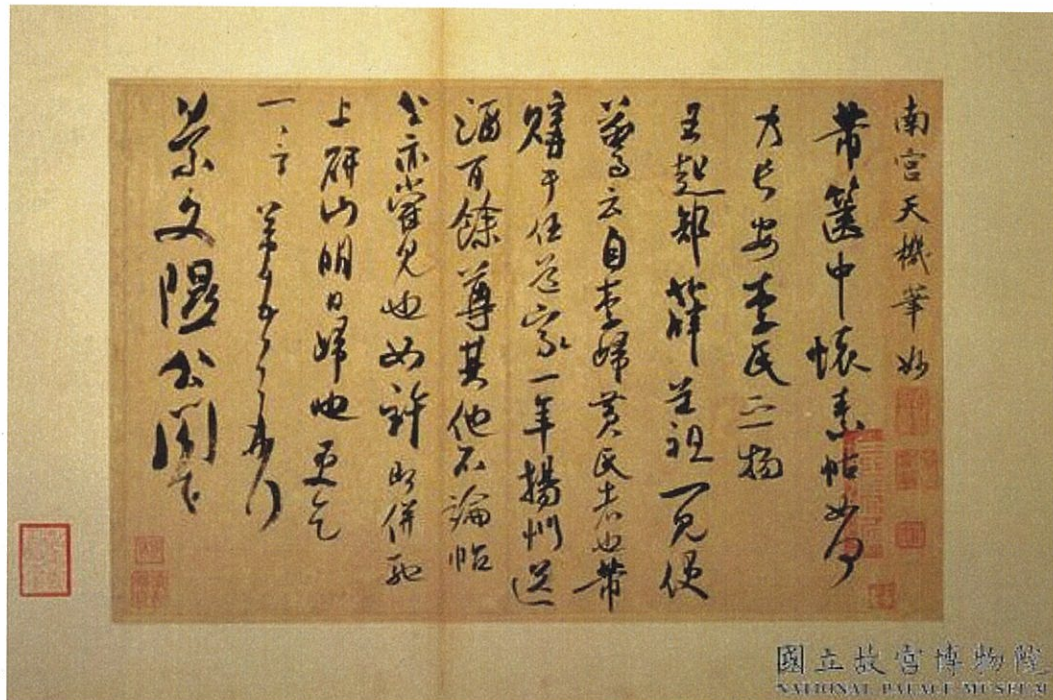 南宮天機筆妙
芾篋中懷素帖如何
乃長安李氏之物
王起部薛道祖一見便
驚云自李歸黃氏者也芾
購于任道家一年揚州送
酒百餘尊其他不論帖
公亦嘗見也如許即併馳
上研山明日歸也更乞
一言芾頓首再拜
景文隰公閣下
國立故宮博物院
NATIONAL PALACE MUSEUM